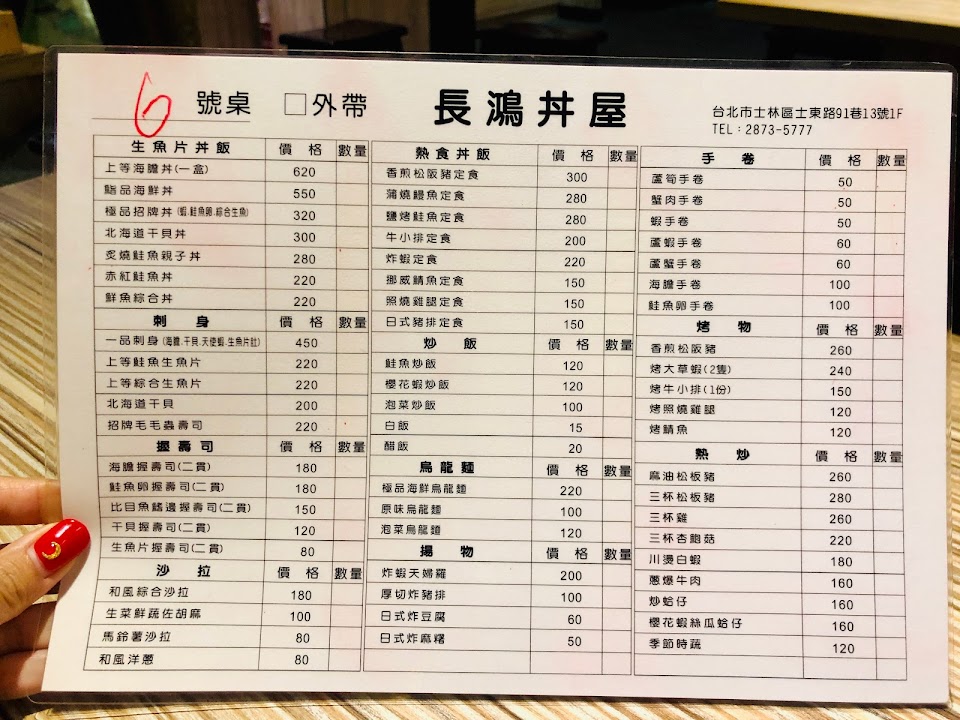 6 號桌 □外帶 長鴻丼屋 台北市士林區士東路91巷13號1F
TEL:2873-5777
生魚片丼飯 價格 數量
上等海膽丼(一盒) 620
鮨品海鮮丼 550
極品招牌丼(蝦.鮭魚卵.綜合生魚) 320
北海道干貝丼 300
炙燒鮭魚親子丼 280
赤紅鮭魚丼 220
鮮魚綜合丼 220
刺身 價格 數量
一品刺身(海膽.干貝.天使蝦.生魚片肚) 450
上等鮭魚生魚片 220
上等綜合生魚片 220
北海道干貝 200
招牌毛毛蟲壽司 220
握壽司 價格 數量
海膽握壽司(二貫) 180
鮭魚卵握壽司(二貫) 180
比目魚鰭邊握壽司(二貫) 150
干貝握壽司(二貫) 120
生魚片握壽司(二貫) 80
沙拉 價格 數量
和風綜合沙拉 180
生菜鮮蔬佐胡麻 100
馬鈴薯沙拉 80
和風洋蔥 80
熱食丼飯 價格 數量
香煎松阪豬定食 300
蒲燒鰻魚定食 280
鹽烤鮭魚定食 280
牛小排定食 200
炸蝦定食 220
挪威鯖魚定食 150
照燒雞腿定食 150
日式豬排定食 150
炒飯 價格 數量
鮭魚炒飯 120
櫻花蝦炒飯 120
泡菜炒飯 100
白飯 15
醋飯 20
烏龍麵 價格 數量
極品海鮮烏龍麵 220
原味烏龍麵 100
泡菜烏龍麵 120
揚物 價格 數量
炸蝦天婦羅 200
厚切炸豬排 100
日式炸豆腐 60
日式炸麻糬 50
手卷 價格 數量
蘆筍手卷 50
蟹肉手卷 50
蝦手卷 50
蘆蝦手卷 60
蘆蟹手卷 60
海膽手卷 100
鮭魚卵手卷 100
烤物 價格 數量
香煎松阪豬 260
烤大草蝦(2隻) 240
烤牛小排(1份) 150
烤照燒雞腿 120
烤鯖魚 120
熱炒 價格 數量
麻油松板豬 260
三杯松板豬 280
三杯雞 260
三杯杏鮑菇 220
川燙白蝦 180
蔥爆牛肉 160
炒蛤仔 160
櫻花蝦絲瓜蛤仔 160
季節時蔬 120